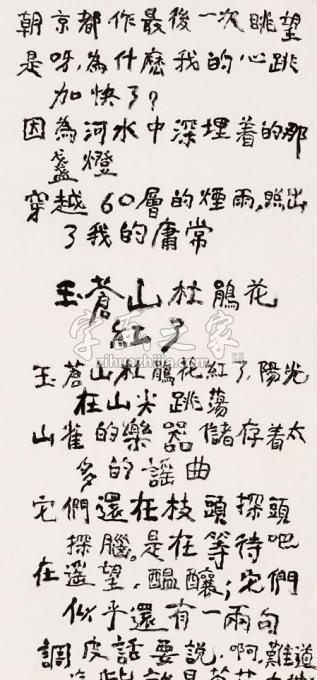 朝京都作最後一次眺望
是呀,為什麼我的心跳
加快了?
因為河水中深埋着的那
盞燈
穿越60層的煙雨,照出
了我的庸常
玉蒼山杜鵑花
紅了
玉蒼山杜鵑花紅了,陽光
在山尖跳蕩
山雀的樂器儲存着太
多的謠曲
它們還在枝頭探頭
探腦。是在等待吧
在遥望,醞釀;它們
似乎還有一兩句
調皮話要說.啊,難道
字画之家
zihuazhijia.com